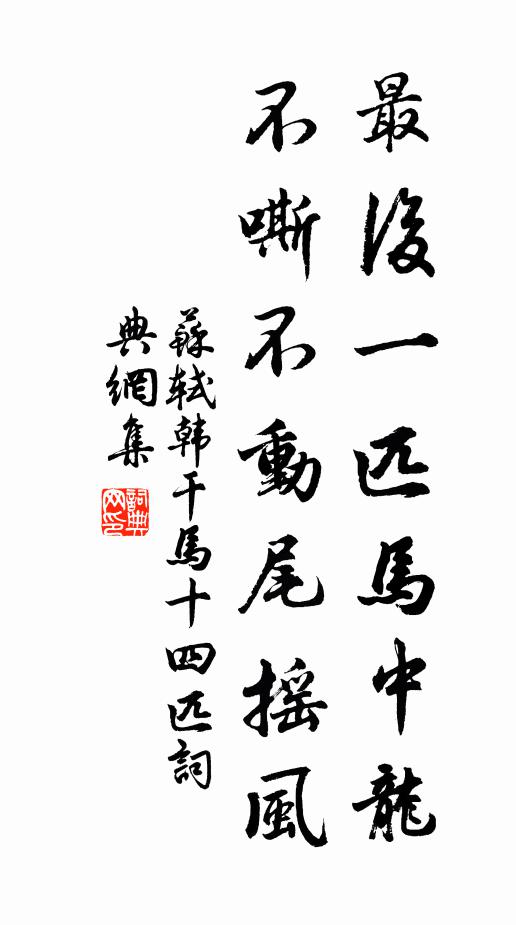 最後一匹馬中龍
不嘶不動尾摇風
蘇軾韩干馬十四匹詞
典網集
詞典
网印